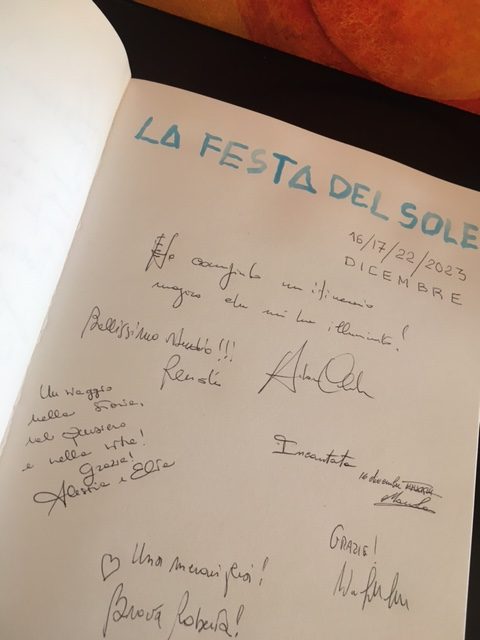 LA FESTA DEL SOLE
16/17/22/2023
DICEMBRE
Ho compiuto un itinerario
magico che mi ha illuminato!
Bellissimo studio!!!
Renata
Un viaggio
nella storia,
nel pensiero
e nella vita!
Grazie!
Alessia e Elisa
Incantata
16 dicembre
GRAZIE!
♡ Una meraviglia!
Brava Roberta!